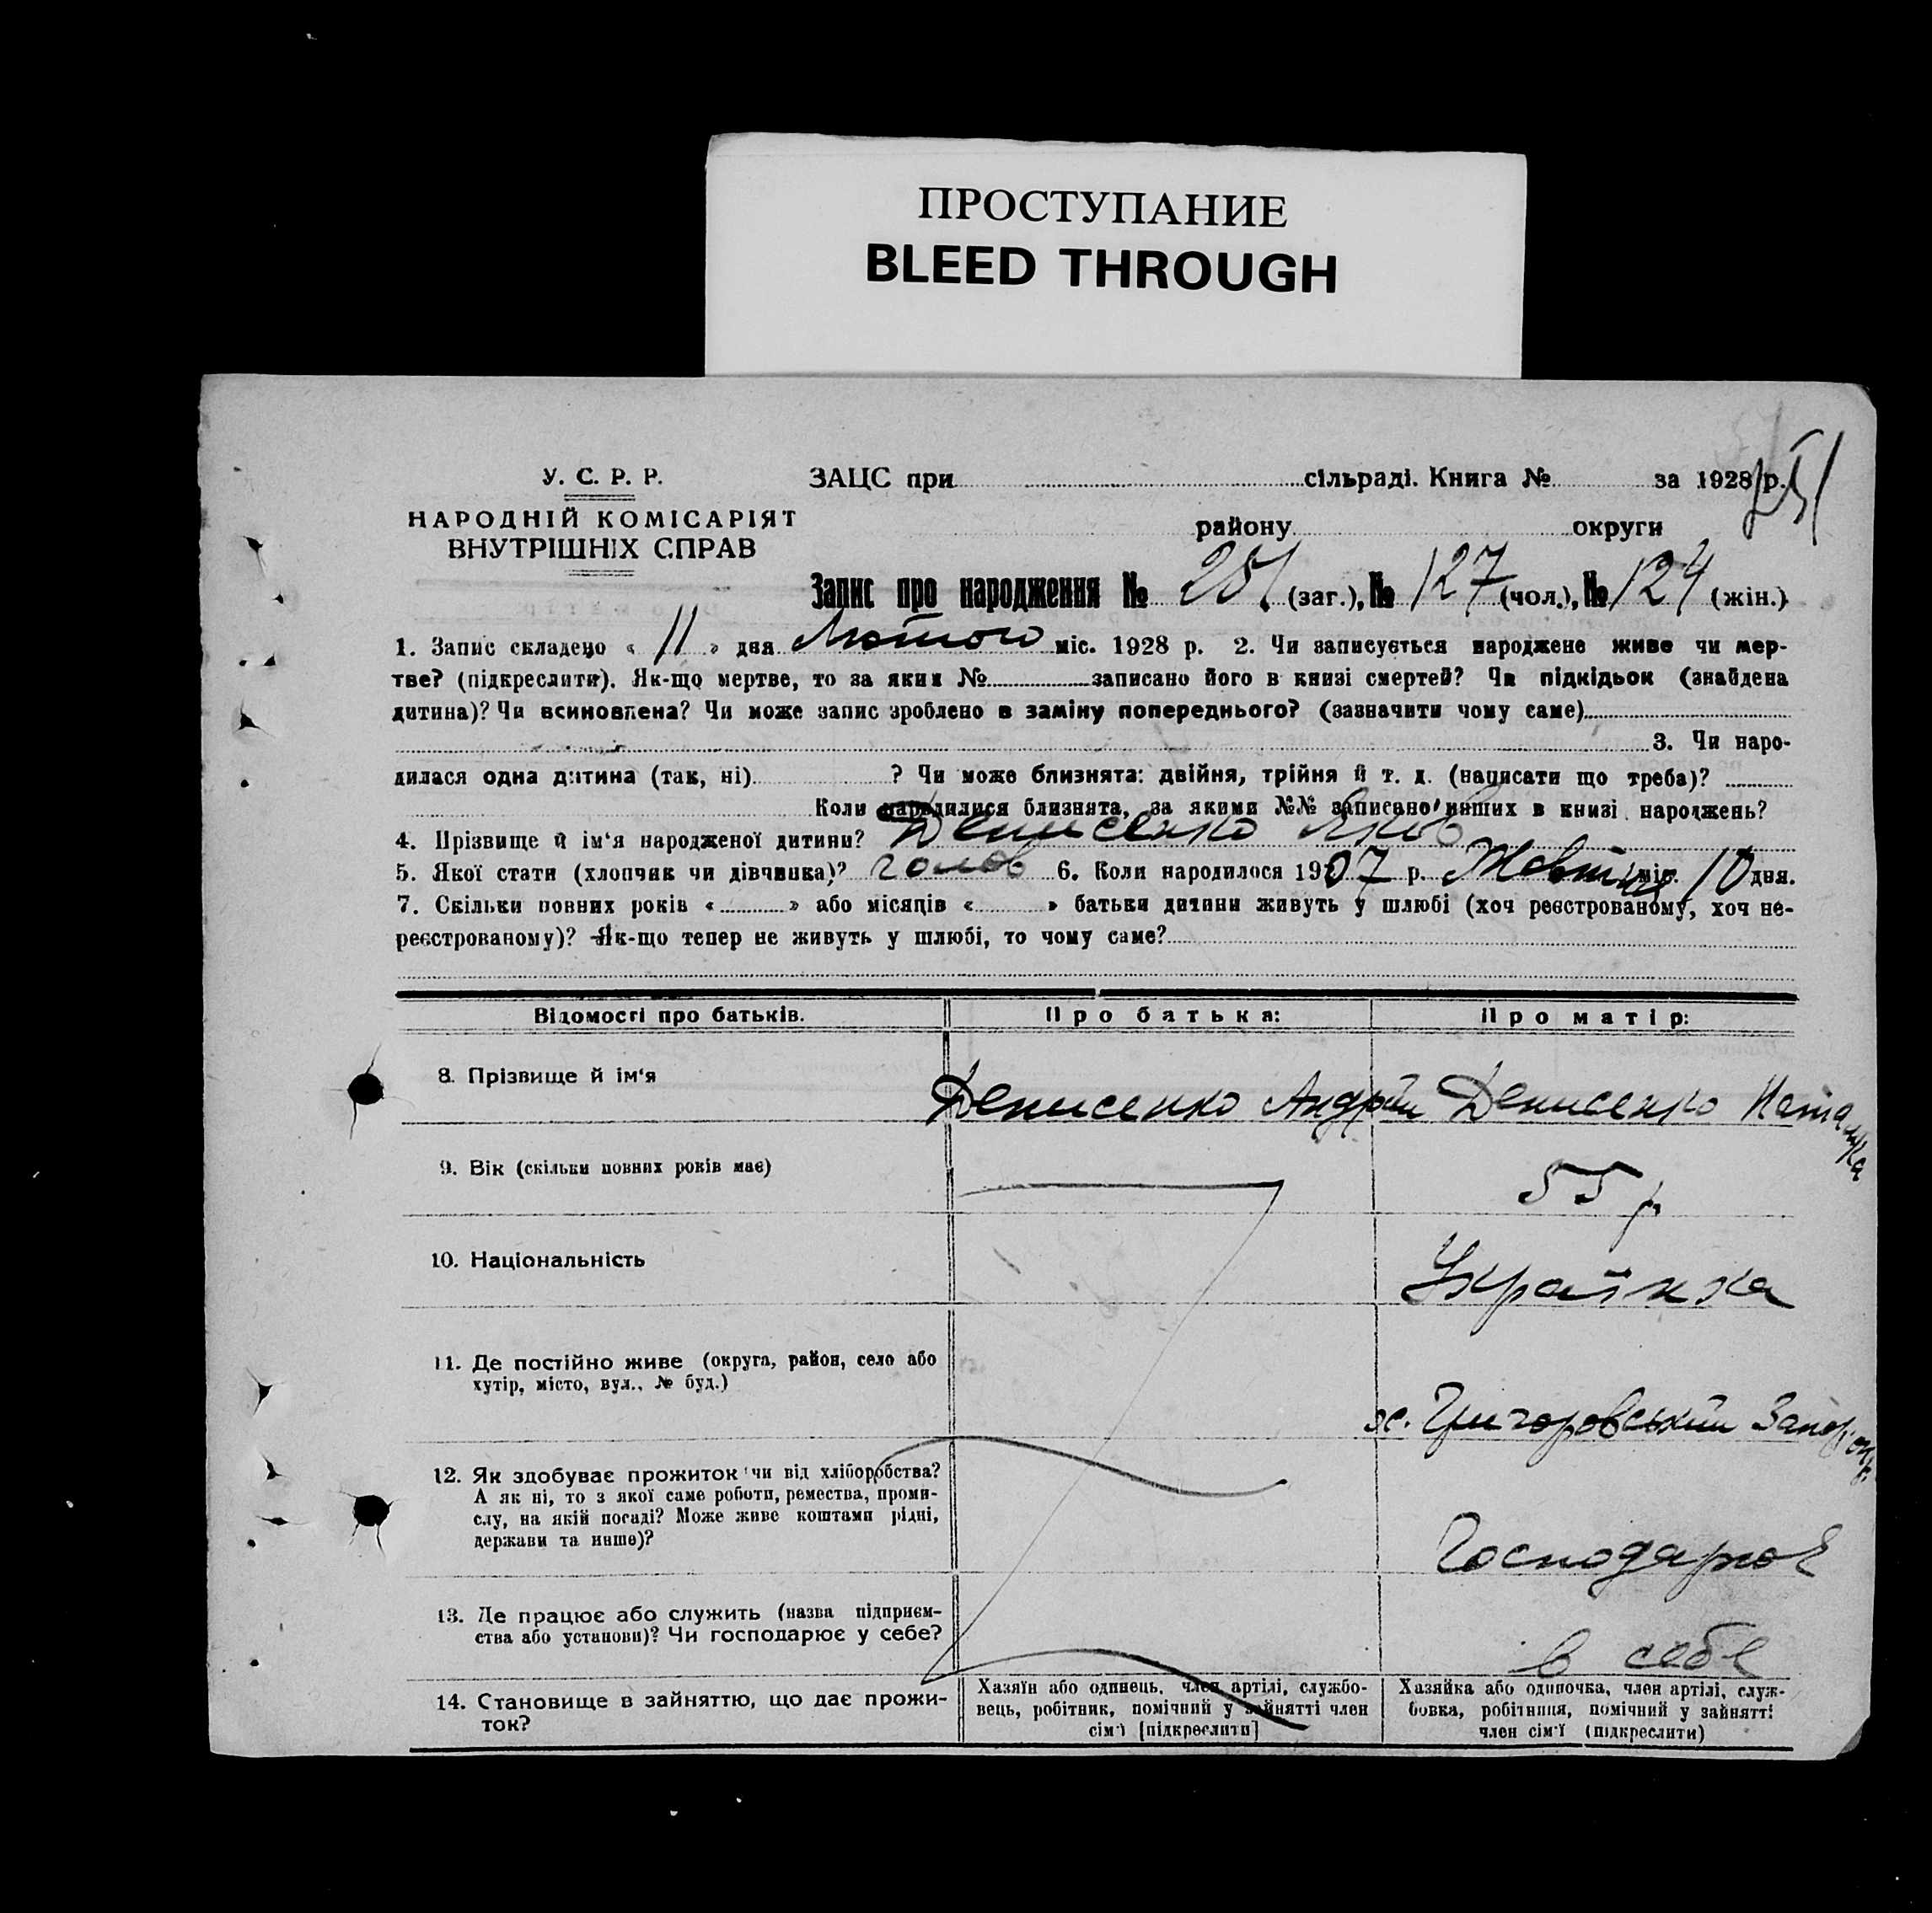 ПРОСТУПАНИЕ
BLEED THROUGH
251
У. С. Р. Р.
НАРОДНІЙ КОМІСАРІЯТ
ВНУТРІШНІХ СПРАВ
ЗАЦС при сільраді. Книга № за 1928 р.
району округи
Запис про народження № 251 (заг.), № 127 (чол.), № 124 (жін.)
1. Запис складено « 11 » дня Лютого міс. 1928 р. 2. Чи записується народжене живе чи мер-
тве? (підкреслити). Як-що мертве, то за яким № записано його в книзі смертей? Чи підкідьок (знайдена
дитина)? Чи всиновлена? Чи може запис зроблено в заміну попереднього? (зазначити чому саме)
3. Чи наро-
дилася одна дитина (так, ні) ? Чи може близнята: двійня, трійня й т. д. (написати що треба)?
Коли народилися близнята, за якими №№ записано инших в книзі народжень?
4. Прізвище й ім'я народженої дитини? Денисенко Яков
5. Якої стати (хлопчик чи дівчинка)? чолов 6. Коли народилося 1907 р. Жовтня міс. 10 дня.
7. Скільки повних років « » або місяців « » батьки дитини живуть у шлюбі (хоч реєстрованому, хоч не-
реєстрованому)? Як-що тепер не живуть у шлюбі, то чому саме?
Відомості про батьків. Про батька: Про матір:
8. Прізвище й ім'я Денисенко Андрій Денисенко Наталка
9. Вік (скільки повних років має) 55 р.
10. Національність Українка
11. Де постійно живе (округа, район, село або
хутір, місто, вул., № буд.)
х. Григоровський Запор. окр.
12. Як здобуває прожиток чи від хліборобства?
А як ні, то з якої саме роботи, ремества, проми-
слу, на якій посаді? Може живе коштами рідні,
держави та инше)?
Господарює
13. Де працює або служить (назва підприєм-
ства або установи)? Чи господарює у себе?
в себе
14. Становище в зайняттю, що дає прожи-
ток?
Хазяїн або одинець, член артілі, службо-
вець, робітник, помічний у зайнятті член
сім'ї [підкреслити]
Хазяйка або одиночка, член артілі, служ-
бовка, робітниця, помічний у зайнятті
член сім'ї (підкреслити)